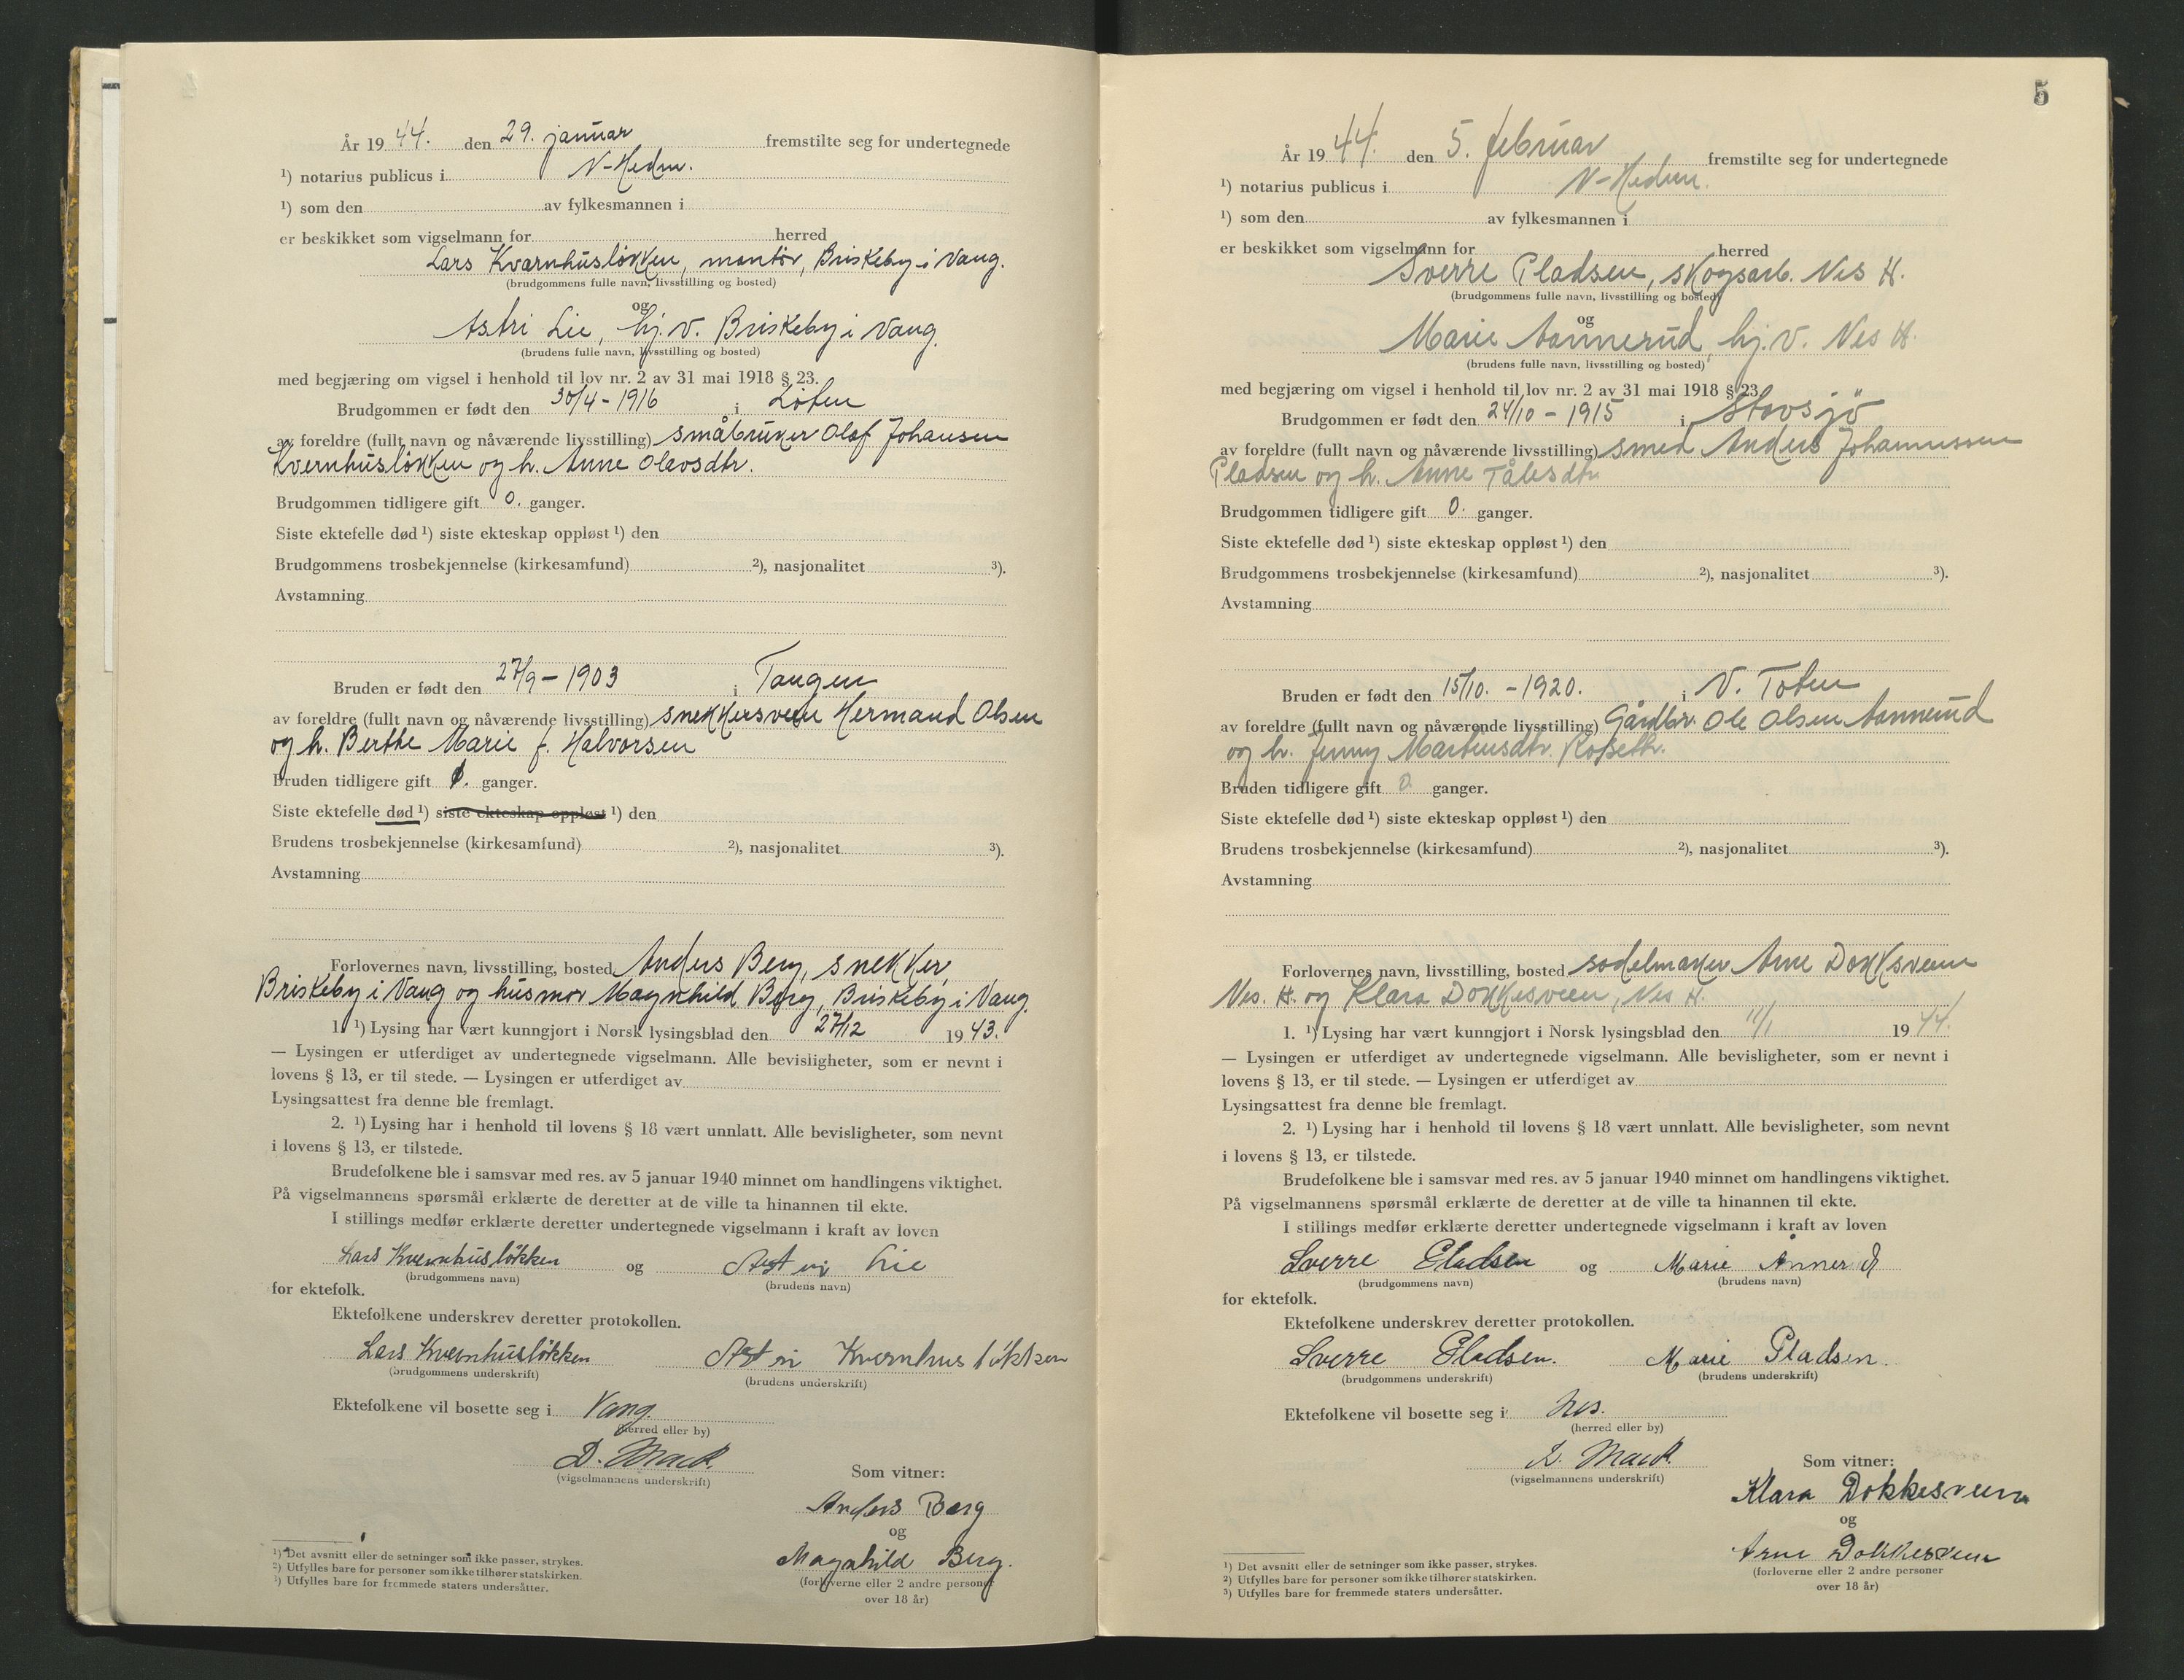 År 1944. den 29. januar fremstilte seg for undertegnede
¹) notarius publicus i N-Hedm.
¹) som den av fylkesmannen i
er beskikket som vigselmann for herred
Lars Kvernhusløkken, montör, Briskeby i Vang.
(brudgommens fulle navn, livsstilling og bosted)
og
Astri Lie, hj.v. Briskeby i Vang.
(brudens fulle navn, livsstilling og bosted)
med begjæring om vigsel i henhold til lov nr. 2 av 31 mai 1918 § 23.
Brudgommen er født den 30/4 - 1916 i Löten
av foreldre (fullt navn og nåværende livsstilling) småbruker Olaf Johansen
Kvernhuslökken og h. Anne Olavsdtr.
Brudgommen tidligere gift 0. ganger.
Siste ektefelle død ¹) siste ekteskap oppløst ¹) den
Brudgommens trosbekjennelse (kirkesamfund) ²), nasjonalitet ³).
Avstamning
Bruden er født den 27/9 - 1903 i Tangen
av foreldre (fullt navn og nåværende livsstilling) snekkersvenn Hermand Olsen
og h. Berthe Marie f. Halvorsen
Bruden tidligere gift ganger.
Siste ektefelle død ¹) siste ekteskap oppløst ¹) den
Brudens trosbekjennelse (kirkesamfund) ²), nasjonalitet ³).
Avstamning
Forlovernes navn, livsstilling, bosted Anders Berg, snekker,
Briskeby i Vang og husmor Magnhild Berg, Briskeby i Vang.
1. ¹) Lysing har vært kunngjort i Norsk lysingsblad den 27/12 1943.
— Lysingen er utferdiget av undertegnede vigselmann. Alle bevisligheter, som er nevnt i
lovens § 13, er til stede. — Lysingen er utferdiget av
Lysingsattest fra denne ble fremlagt.
2. ¹) Lysing har i henhold til lovens § 18 vært unnlatt. Alle bevisligheter, som nevnt
i lovens § 13, er tilstede.
Brudefolkene ble i samsvar med res. av 5 januar 1940 minnet om handlingens viktighet.
På vigselmannens spørsmål erklærte de deretter at de ville ta hinannen til ekte.
I stillings medfør erklærte deretter undertegnede vigselmann i kraft av loven
Lars Kvernhuslökken og Astri Lie
(brudgommens navn) (brudens navn)
for ektefolk.
Ektefolkene underskrev deretter protokollen.
Lars Kvernhuslökken Astri Kvernhuslökken
(brudgommens underskrift) (brudens underskrift)
Ektefolkene vil bosette seg i Vang.
(herred eller by)
D. Mack.
(vigselmannens underskrift)
Som vitner:
Anders Berg
og
Magnhild Berg.
(forloverne eller 2 andre personer
over 18 år)
¹) Det avsnitt eller de setninger som ikke passer, strykes.
²) Utfylles bare for personer som ikke tilhører statskirken.
³) Utfylles bare for fremmede staters undersåtter.
5
År 1944. den 5. februar fremstilte seg for undertegnede
¹) notarius publicus i N-Hedm.
¹) som den av fylkesmannen i
er beskikket som vigselmann for herred
Sverre Pladsen, skogsarb. Nes H.
(brudgommens fulle navn, livsstilling og bosted)
og
Marie Aannerud, hj.v. Nes H.
(brudens fulle navn, livsstilling og bosted)
med begjæring om vigsel i henhold til lov nr. 2 av 31 mai 1918 § 23.
Brudgommen er født den 24/10 - 1915 i Stavsjö
av foreldre (fullt navn og nåværende livsstilling) smed Anders Johannessen
Pladsen og h. Anne
Brudgommen tidligere gift 0. ganger.
Siste ektefelle død ¹) siste ekteskap oppløst ¹) den
Brudgommens trosbekjennelse (kirkesamfund) ²), nasjonalitet ³).
Avstamning
Bruden er født den 15/10. - 1920. i V. Toten
av foreldre (fullt navn og nåværende livsstilling) Gårdbr. Ole Olsen Aannerud
og h. Jenny Martinsdtr.
Bruden tidligere gift 0 ganger.
Siste ektefelle død ¹) siste ekteskap oppløst ¹) den
Brudens trosbekjennelse (kirkesamfund) ²), nasjonalitet ³).
Avstamning
Forlovernes navn, livsstilling, bosted sadelmaker Arne Dokksveen
Nes. H. og Klara Dokkesveen, Nes H.
1. ¹) Lysing har vært kunngjort i Norsk lysingsblad den 1944.
— Lysingen er utferdiget av undertegnede vigselmann. Alle bevisligheter, som er nevnt i
lovens § 13, er til stede. — Lysingen er utferdiget av
Lysingsattest fra denne ble fremlagt.
2. ¹) Lysing har i henhold til lovens § 18 vært unnlatt. Alle bevisligheter, som nevnt
i lovens § 13, er tilstede.
Brudefolkene ble i samsvar med res. av 5 januar 1940 minnet om handlingens viktighet.
På vigselmannens spørsmål erklærte de deretter at de ville ta hinannen til ekte.
I stillings medfør erklærte deretter undertegnede vigselmann i kraft av loven
Sverre Pladsen og Marie Ånnerud
(brudgommens navn) (brudens navn)
for ektefolk.
Ektefolkene underskrev deretter protokollen.
Sverre Pladsen. Marie Pladsen.
(brudgommens underskrift) (brudens underskrift)
Ektefolkene vil bosette seg i Nes.
(herred eller by)
D. Mack.
(vigselmannens underskrift)
Som vitner:
Klara Dokkesveen
og
Arne Dokkesveen
(forloverne eller 2 andre personer
over 18 år)
¹) Det avsnitt eller de setninger som ikke passer, strykes.
²) Utfylles bare for personer som ikke tilhører statskirken.
³) Utfylles bare for fremmede staters undersåtter.